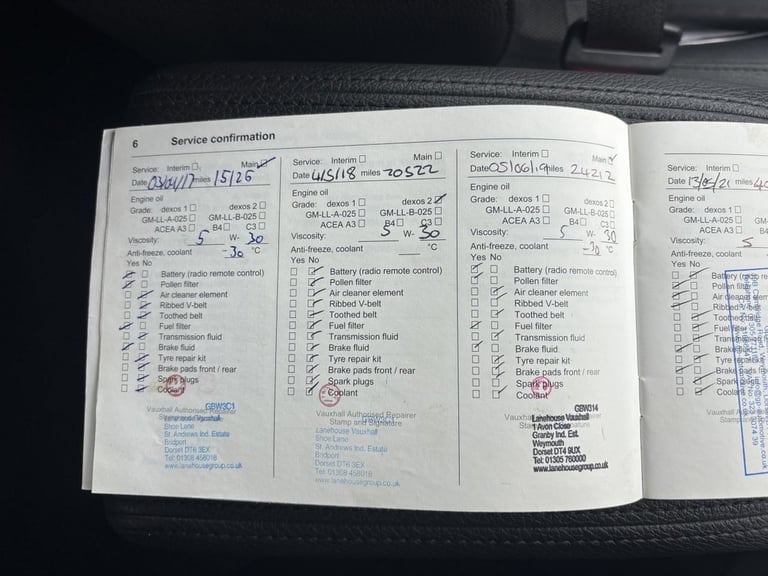 6 Service confirmation
Service: Interim Main
Date 03/04/17 miles 15126
Engine oil
Grade: dexos 1 dexos 2
GM-LL-A-025 GM-LL-B-025
ACEA A3 B4 C3
Viscosity: 5 W- 30
Anti-freeze, coolant -30 °C
Yes No
Battery (radio remote control)
Pollen filter
Air cleaner element
Ribbed V-belt
Toothed belt
Fuel filter
Transmission fluid
Brake fluid
Tyre repair kit
Brake pads front / rear
Spark plugs
Coolant
GBW3C1
Vauxhall Authorised Repairer
Lanehouse Vauxhall
Shoe Lane
St. Andrews Ind. Estate
Bridport
Dorset DT6 3EX
Tel: 01308 458018
www.lanehousegroup.co.uk
Service: Interim Main
Date 4/5/18 miles 20522
Engine oil
Grade: dexos 1 dexos 2
GM-LL-A-025 GM-LL-B-025
ACEA A3 B4 C3
Viscosity: 5 W- 30
Anti-freeze, coolant °C
Yes No
Battery (radio remote control)
Pollen filter
Air cleaner element
Ribbed V-belt
Toothed belt
Fuel filter
Transmission fluid
Brake fluid
Tyre repair kit
Brake pads front / rear
Spark plugs
Coolant
Vauxhall Authorised Repairer
Stamp and Signature
Lanehouse Vauxhall
Shoe Lane
St. Andrews Ind. Estate
Bridport
Dorset DT6 3EX
Tel: 01308 458018
www.lanehousegroup.co.uk
Service: Interim Main
Date 05/06/19 miles 24212
Engine oil
Grade: dexos 1 dexos 2
GM-LL-A-025 GM-LL-B-025
ACEA A3 B4 C3
Viscosity: 5 W- 30
Anti-freeze, coolant -30 °C
Yes No
Battery (radio remote control)
Pollen filter
Air cleaner element
Ribbed V-belt
Toothed belt
Fuel filter
Transmission fluid
Brake fluid
Tyre repair kit
Brake pads front / rear
Spark plugs
Coolant
GBW314
Lanehouse Vauxhall
1 Avon Close
Granby Ind. Est.
Weymouth
Dorset DT4 9UX
Tel: 01305 760000
www.lanehousegroup.co.uk
Service: Interim
Date 13/05/21 miles
Engine oil
Grade: dexos 1
GM-LL-A-025
ACEA A3
Viscosity: 5
Anti-freeze, coolant
Yes No
Battery
Pollen filter
Air cleaner
Ribbed
Toothed
Fuel
Transmission
Brake
Tyre
Brake
Spark
Coolant